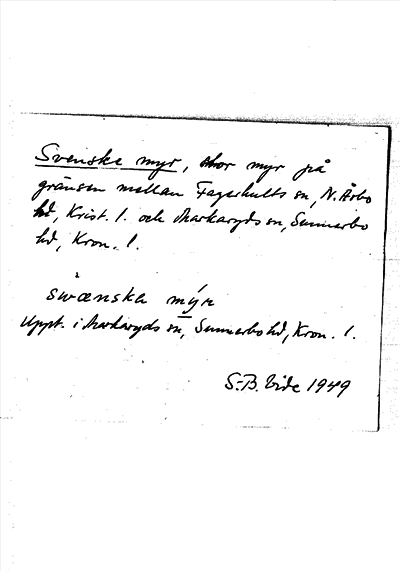 Svenske myr, stor myr på
gränsen mellan Fagerhults sn, N. Åsbo
hd, Krist. l. och Markaryds sn, Sunnerbo
hd, Kron. l.
swænska mýr
Uppt. i Markaryds sn, Sunnerbo hd, Kron. l.
S-B. Vide 1949